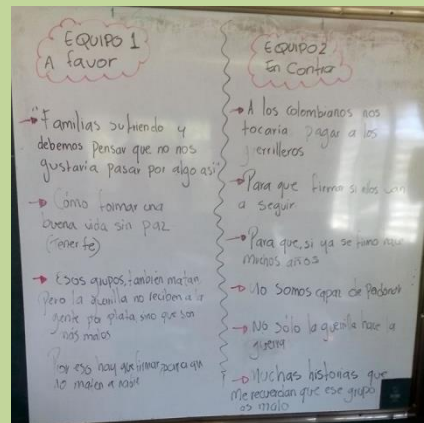 EQUIPO 1
A favor
"Familias sufriendo y
debemos pensar que no nos
gustaria pasar por algo asi"
Cómo formar una
buena vida sin paz
(tener fe)
Esos grupos, también matan
Pero la guerrilla no reciben a la
gente por plata, sino que son
más malos
Por eso hay que firmar, para que
no maten a nadie
EQUIPO 2
En Contra
A los colombianos nos
tocaria pagar a los
guerrilleros
Para que firmar si ellos van
a seguir
Para que, si ya se firmo hace
muchos años
No somos capaz de Perdonar
No sólo la guerrilla hace la
guerra
Muchas historias que
me recuerdan que ese grupo
es malo